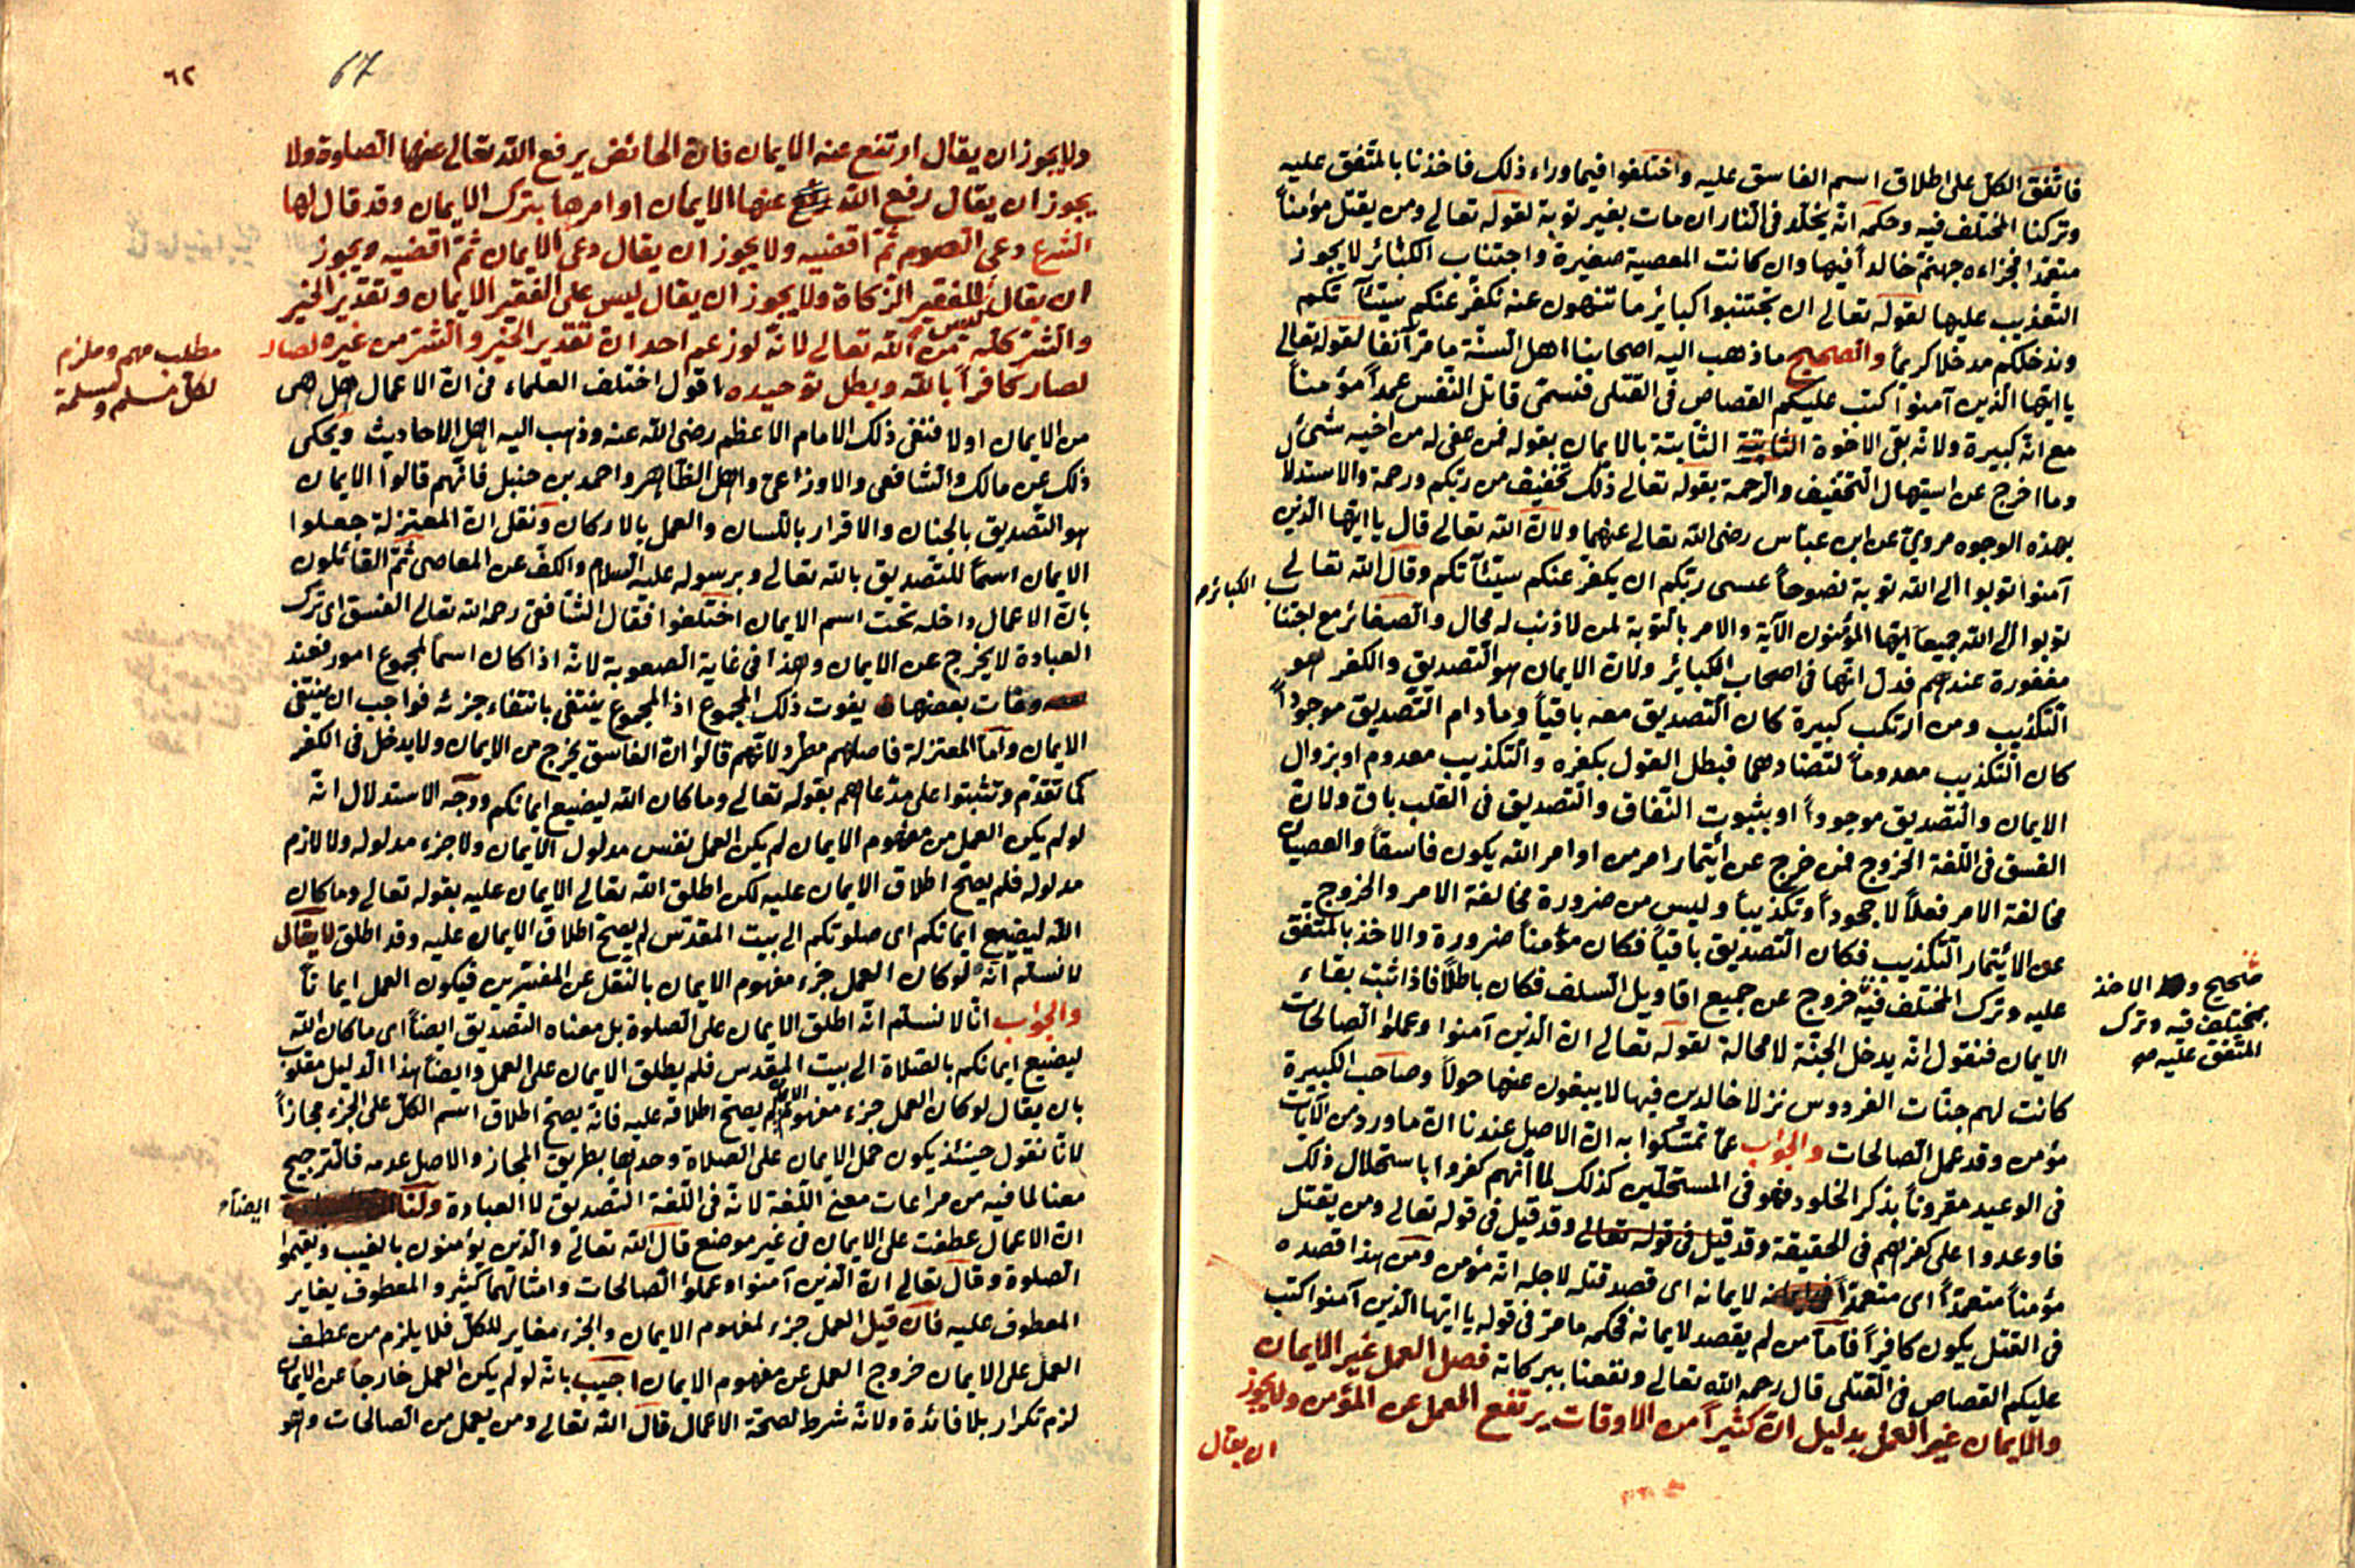 فاتّفق الكلّ على اطلاق اسم الفاسق عليه واختلفوا فيما وراء ذلك فاخذنا بالمتّفق عليه
وتركنا المختلف فيه وحكمه انّه يخلّد فى النار ان مات بغير توبة لقوله تعالى ومن يقتل مؤمناً
متعمّدا فجزاءه جهنّم خالداً فيها وان كانت المعصية صغيرة واجتناب الكبائر لا يجوز
التعذيب عليها لقوله تعالى ان تجتنبوا كبائر ما تنهون عنه نكفّر عنكم سيّئاتكم
وندخلكم مدخلا كريماً والصحيح ما ذهب اليه اصحابنا اهل السنّة ما مرّ آنفاً لقوله تعالى
يا ايّها الّذين آمنوا كتب عليكم القصاص فى القتلى فتسمّى قاتل النفس عمداً مؤمناً
مع انّه كبيرة ولانّه بقى الاخوة الثابتة بالايمان بقوله فمن عفى له من اخيه شئ
وما اخرج عن استيهال التخفيف والرحمة بقوله تعالى ذلك تخفيف من ربّكم ورحمة والاستدلال
بهذه الوجوه مروىّ عن ابن عبّاس رضى الله تعالى عنهما ولانّ الله تعالى قال يا ايّها الّذين
آمنوا توبوا الى الله توبة نصوحاً عسى ربّكم ان يكفّر عنكم سيّئآتكم وقال الله تعالى
توبوا الى الله جميعاً ايّها المؤمنون الآية والامر بالتوبة لمن لا ذنب له محال والصغائر مع اجتناب الكبائر
مغفورة عندهم فدلّ انّها فى اصحاب الكبائر ولانّ الايمان هو التصديق والكفر هو
التكذيب ومن ارتكب كبيرة كان التصديق معه باقياً وما دام التصديق موجوداً
كان التكذيب معدوماً لتضادهما فبطل القول بكفره والتكذيب معدوم او بزوال
الايمان والتصديق موجوداً او بثبوت النفاق والتصديق فى القلب باق ولانّ
الفسق فى اللغة الخروج فمن خرج عن ائتمار امر من اوامر الله يكون فاسقاً والعصيان
مخالفة الامر فعلاً لا جحوداً وتكذيباً وليس من ضرورة مخالفة الامر والخروج
عن الائتمار التكذيب فكان التصديق باقياً فكان مؤمناً ضرورة والاخذ بالمتّفق
عليه وترك المختلف فيه خروج عن جميع اقاويل السلف فكان باطلاً فاذا ثبت بقاء
صحيح والاخذ
بمختلف فيه وترك
المتّفق عليه صح
الايمان فنقول انّه يدخل الجنّة لا محالة لقوله تعالى انّ الّذين آمنوا وعملوا الصالحات
كانت لهم جنّات الفردوس نزلا خالدين فيها لا يبغون عنها حولاً وصاحب الكبيرة
مؤمن وقد عمل الصالحات والجواب عمّا تمسّكوا به انّ الاصل عندنا انّ ما ورد من الآيات
فى الوعيد مقروناً بذكر الخلود فهو فى المستحلّين كذلك لما انّهم كفروا باستحلال ذلك
فاوعدوا على كفرهم فى الحقيقة وقد قيل فى قوله تعالى وقد قيل فى قوله تعالى ومن يقتل
مؤمناً متعمّداً اى متعمّداً لايمانه اى قصد قتله لاجل انّه مؤمن ومن هذا قصده
فى القتل يكون كافراً فامّا من لم يقصد لايمانه فحكمه ما مرّ فى قوله يا ايّها الّذين آمنوا كتب
عليكم القصاص فى القتلى قال رحمه الله تعالى ونفعنا ببركاته فصل العمل غير الايمان
والايمان غير العمل بدليل انّ كثيراً من الاوقات يرتفع العمل عن المؤمن ولا يجوز
ان يقال
٦٢
67
ولا يجوز ان يقال ارتفع عنه الايمان فانّ الحائض يرفع الله تعالى عنها الصلوة ولا
يجوز ان يقال رفع الله عنها الايمان او امرها بترك الايمان وقد قال لها
الشرع دعى الصوم ثمّ اقضيه ولا يجوز ان يقال دعى الايمان ثمّ اقضيه ويجوز
ان يقال ليس للفقير الزكاة ولا يجوز ان يقال ليس على الفقير الايمان وتقدير الخير
والشرّ كلّه من الله تعالى لانّه لو زعم احد انّ تقدير الخير والشرّ من غيره لصار
مطلب مهم وملزم
لكلّ مسلم ومسلمة
لصار كافراً بالله وبطل توحيده اقول اختلف العلماء فى انّ الاعمال هل هى
من الايمان اولا فنفى ذلك الامام الاعظم رضى الله عنه وذهب اليه اهل الاحاديث ويحكى
ذلك عن مالك والشافعى والاوزاعى واهل الظاهر واحمد بن حنبل فانّهم قالوا الايمان
هو التصديق بالجنان والاقرار باللسان والعمل بالاركان ونقل انّ المعتزلة جعلوا
الايمان اسماً للتصديق بالله تعالى وبرسوله عليه السلام والكفّ عن المعاصى ثمّ القائلون
بانّ الاعمال داخلة تحت اسم الايمان اختلفوا فقال الشافعى رحمه الله تعالى الفسق اى ترك
العبادة لا يخرج عن الايمان وهذا فى غاية الصعوبة لانّه اذا كان اسماً لمجموع امور فعند
وفات بعضها يفوت ذلك المجموع اذ المجموع ينتفى بانتفاء جزئه فواجب ان ينتفى
الايمان وامّا المعتزلة فاصلهم مطّرد لانّهم قالوا انّ الفاسق يخرج من الايمان ولا يدخل فى الكفر
كما تقدّم وتشبّثوا على مدّعاهم بقوله تعالى وما كان الله ليضيع ايمانكم ووجه الاستدلال انّه
لو لم يكن العمل من مفهوم الايمان لم يكن العمل نفس مدلول الايمان ولا جزء مدلوله ولا لازم
مدلوله فلم يصحّ اطلاق الايمان عليه لكن اطلق الله تعالى الايمان عليه بقوله تعالى وما كان
الله ليضيع ايمانكم اى صلوتكم الى بيت المقدّس لم يصحّ اطلاق الايمان عليه وقد اطلق لا يقال
لا نسلّم انّه لو كان العمل جزء مفهوم الايمان بالنقل عن المفسّرين فيكون العمل ايماناً
والجواب انّا لا نسلّم انّه اطلق الايمان على الصلوة بل معناه التصديق ايضاً اى ما كان الله
ليضيع ايمانكم بالصلاة الى بيت المقدس فلم يطلق الايمان على العمل وايضاً هذا الدليل مقلوب
بان يقال لو كان العمل جزء مفهوم الايمان لم يصحّ اطلاقه عليه فانّه يصحّ اطلاق اسم الكلّ على الجزء مجازاً
لانّا نقول حينئذ يكون حمل الايمان على الصلاة وحدها بطريق المجاز والاصل عدمه فالترجيح
معنا لما فيه من مراعات معنى اللغة لانّه فى اللغة التصديق لا العبادة ولنا ايضاً
انّ الاعمال عطفت على الايمان فى غير موضع قال الله تعالى والّذين يؤمنون بالغيب ويقيموا
الصلوة وقال تعالى انّ الّذين آمنوا وعملوا الصالحات وامثالهما كثير والمعطوف يغاير
المعطوف عليه فان قيل العمل جزء لمفهوم الايمان والجزء مغاير للكلّ فلا يلزم من عطف
العمل على الايمان خروج العمل عن مفهوم الايمان اجيب بانّه لو لم يكن العمل خارجاً عن الايمان
لزم تكرار بلا فائدة ولانّه شرط لصحّة الاعمال قال الله تعالى ومن يعمل من الصالحات وهو